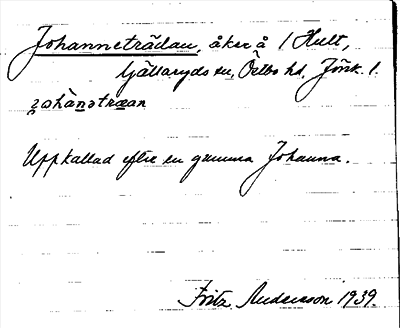 Johanneträdan, åker å 1 Hult,
Gällaryds sn, Östbo hd, Jönk. l.
johànətrædan
Uppkallad efter en gumma Johanna.
Fritz Andersson 1939.